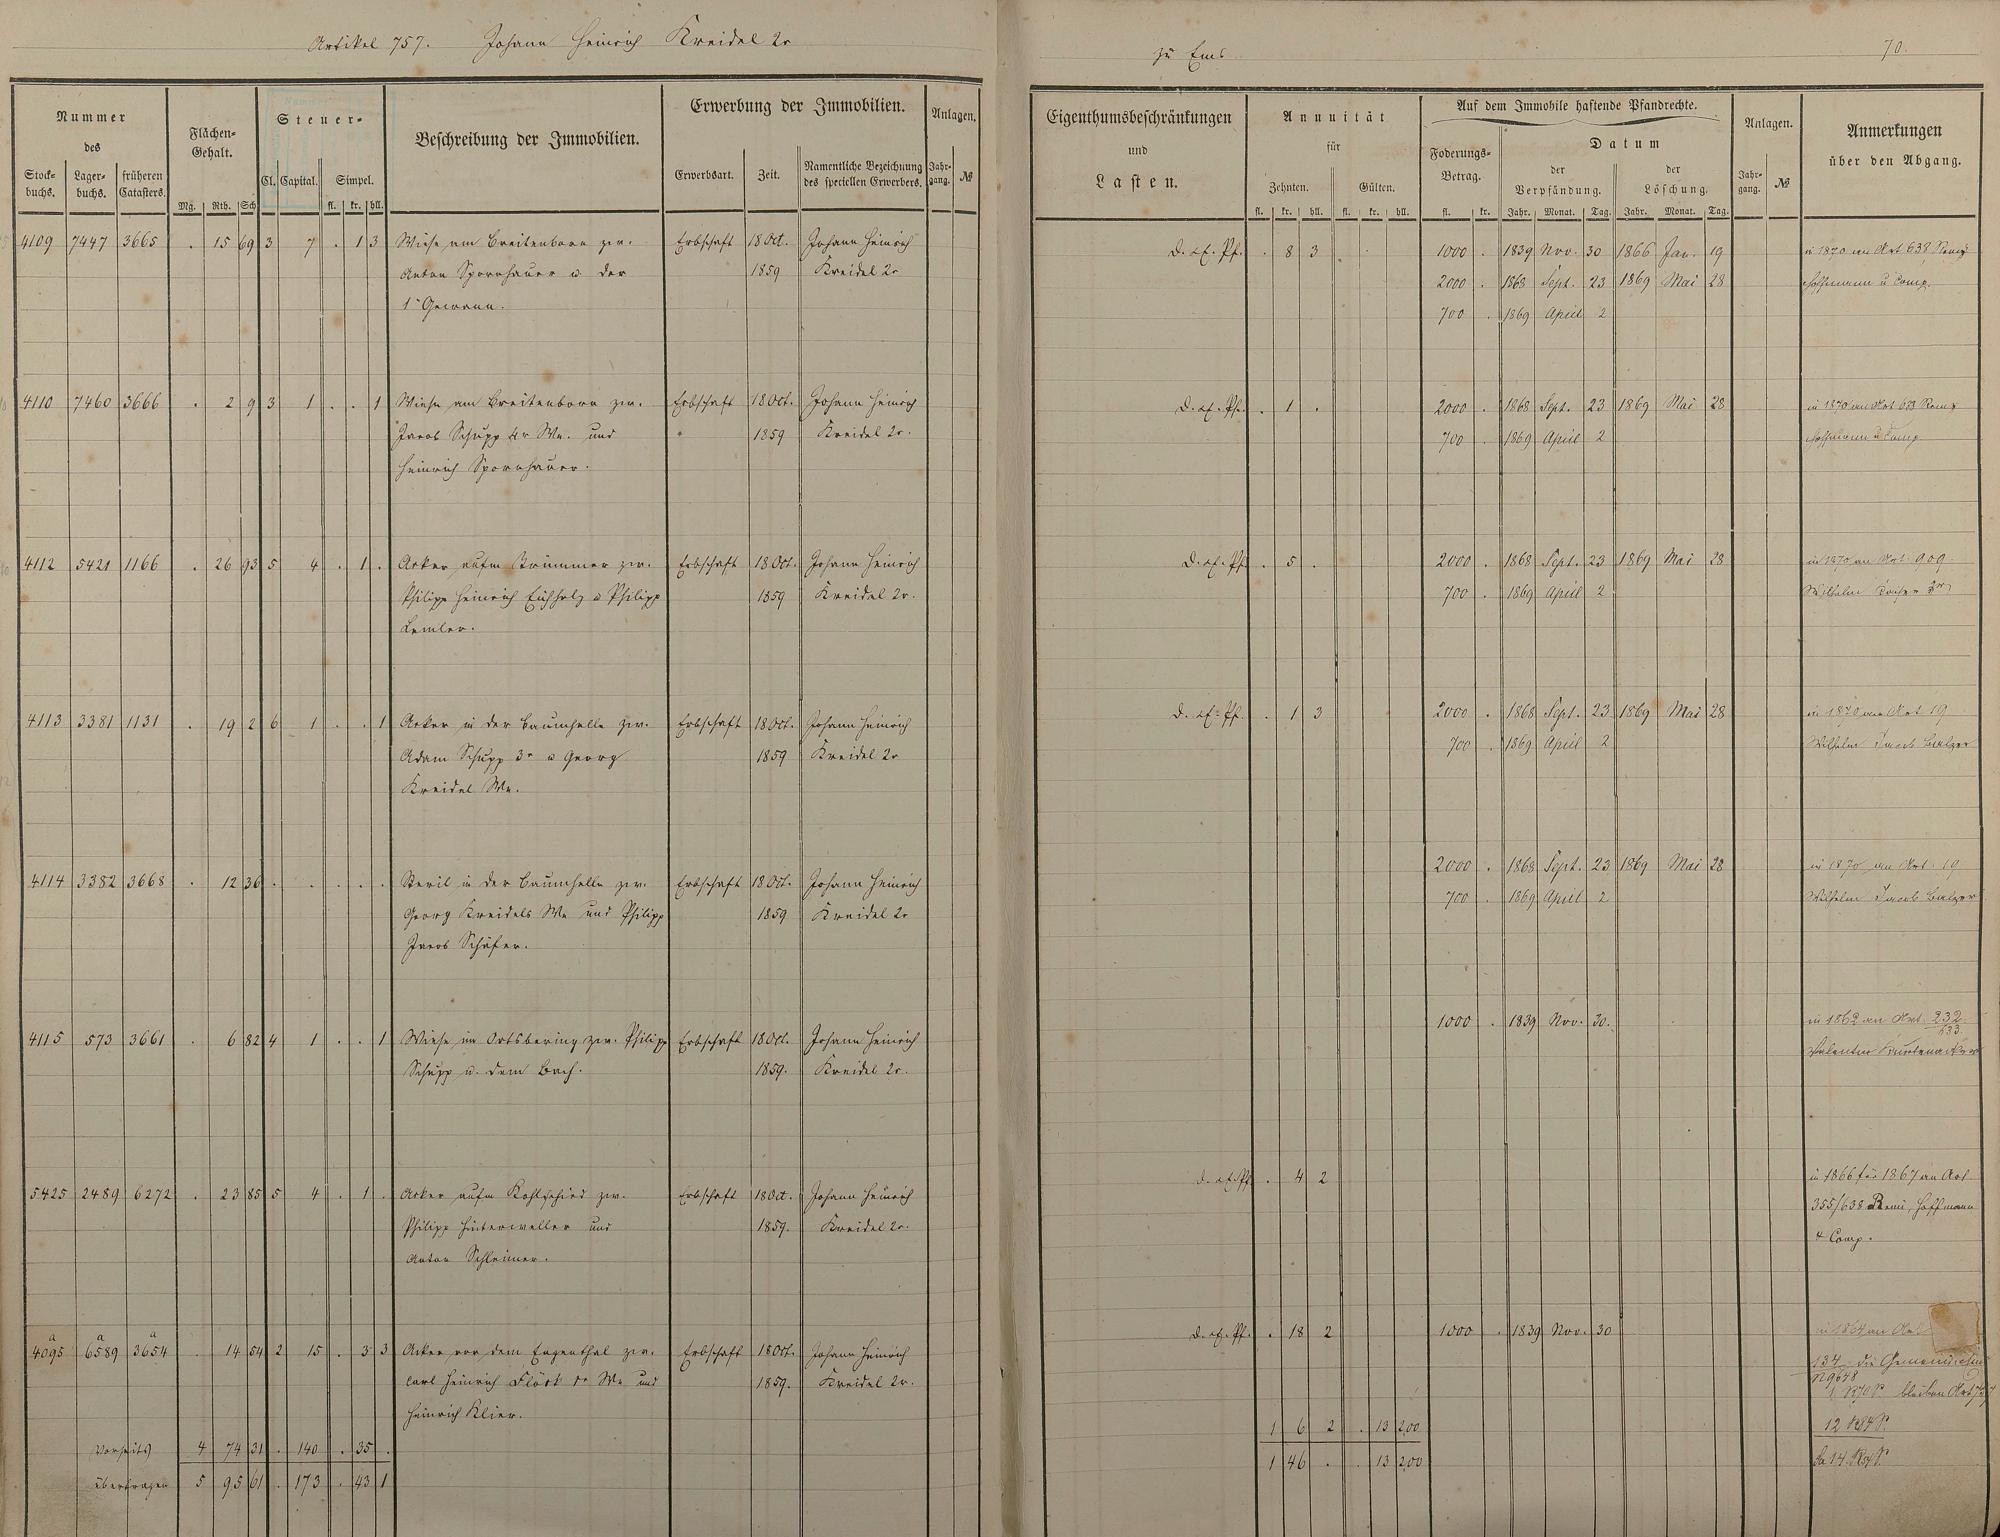 Artikel 757. Johann Heinrich Kreidel 2r
zu Ems
70.
Nummer
des
Stock-
buchs.
Lager-
buchs.
früheren
Catasters.
Flächen-
Gehalt.
Mg. Rth. Sch.
Steuer-
Cl. Capital. Simpel.
fl. kr. hll.
Beschreibung der Immobilien.
Erwerbung der Immobilien.
Erwerbsart. Zeit.
Namentliche Bezeichnung
des speciellen Erwerbers.
Anlagen.
Jahr-
gang.
№
Eigenthumsbeschränkungen
und
Lasten.
Annuität
für
Zehnten. Gülten.
fl. kr. hll. fl. kr. hll.
Auf dem Immobile haftende Pfandrechte.
Foderungs-
Betrag.
fl. kr.
Datum
der
Verpfändung.
der
Löschung.
Jahr. Monat. Tag. Jahr. Monat. Tag.
Anlagen.
Jahr-
gang.
№
Anmerkungen
über den Abgang.
4109 7447 3665 . 15 69 3 7 . 1 3 Wiese am Breitenborn zw. Erbschaft 18 Oct. Johann Heinrich D. u. E. Pf. . 8 3 1000 . 1839 Nov. 30 1866 Jan. 19 in 1870 an Art 638 Remy
Anton Spornhauer u der 1859 Kreidel 2r 2000 . 1868 Sept. 23 1869 Mai 28 Hoffmann u Comp.
1n Gewann. 700 . 1869 April 2
4110 7460 3666 . 2 9 3 1 . . 1 Wiese am Breitenborn zw. Erbschaft 18 Oct. Johann Heinrich D. u. E. Pf. . 1 . 2000 . 1868 Sept. 23 1869 Mai 28 in 1870 an Art Remy
Jacob Schupp Wn. und 1859 Kreidel 2r. 700 . 1869 April 2 Hoffmann u Comp
Heinrich Spornhauer.
4112 5421 1166 . 26 93 5 4 . 1 . Acker aufm Trümmer zw. Erbschaft 18 Oct. Johann Heinrich D. u. E. Pf. . 5 . 2000 . 1868 Sept. 23 1869 Mai 28 in 1870 an Art 909
Philipp Heinrich Eichholz u Philipp 1859 Kreidel 2r. 700 . 1869 April 2 Wilhelm
Lemler.
4113 3381 1131 . 19 2 6 1 . . 1 Acker in der Baumhelle zw. Erbschaft 18 Oct. Johann Heinrich D. u. E. Pf. . 1 3 2000 . 1868 Sept. 23 1869 Mai 28 in 1870 an Art 19
Adam Schupp 3r u Georg 1859 Kreidel 2r 700 . 1869 April 2 Wilhelm Jacob Balzer
Kreidel Wn.
4114 3382 3668 . 12 36 . . . . . Steril in der Baumhelle zw. Erbschaft 18 Oct. Johann Heinrich 2000 . 1868 Sept. 23 1869 Mai 28 in 1870 an Art. 19
Georg Kreidels Wn und Philipp 1859 Kreidel 2r 700 . 1869 April 2 Wilhelm Jacob Balzer
Jacob Schäfer.
4115 573 3661 . 6 82 4 1 . . 1 Wiese im Ortsbering zw. Philipp Erbschaft 18 Oct. Johann Heinrich 1000 . 1839 Nov. 30. in 1862 an Art. 232
Schupp u. dem Bach. 1859. Kreidel 2r. Valentin
5425 2489 6272 . 23 85 5 4 . 1 . Acker aufm Kohlscheid zw. Erbschaft 18 Oct. Johann Heinrich D. u. E. Pf. . 4 2 in 1866 für 1867 an Art
Philipp Hinterweller und 1859. Kreidel 2r. 355/638 Remi, Hoffmann
Anton Schleimer. & Comp.
a a a
4095 6589 3654 . 14 54 2 15 . 3 3 Acker vor dem Engenthal zw. Erbschaft 18 Oct. Johann Heinrich D. u. E. Pf. . 18 2 1000 . 1839 Nov. 30 in 1864 an Art
Carl Heinrich Flöck Wn und 1859. Kreidel 2r. 134 die
Heinrich Klier. bleiben Art
1 6 2 . 13 200
Vorseits 4 74 31 . 140 . 35 .
1 46 . . 13 200
übertragen 5 95 61 . 173 . 43 1